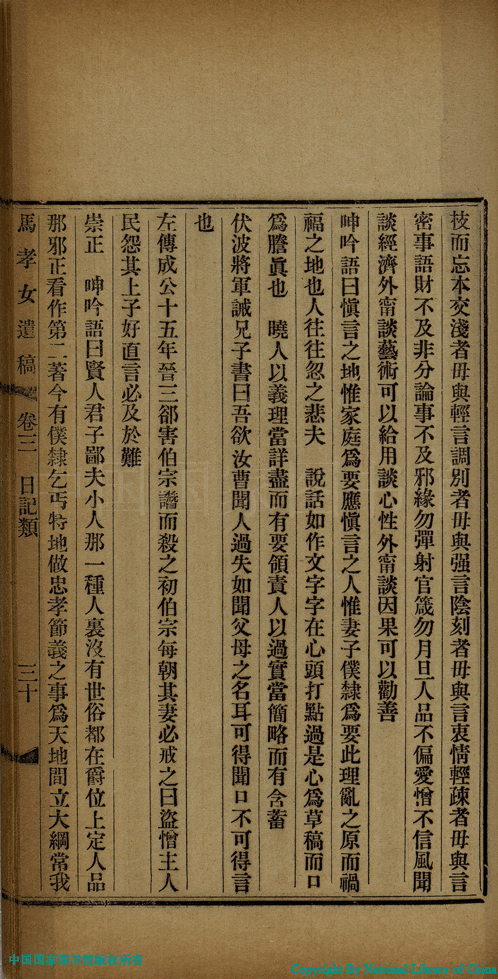 枝而忘本交淺者毋與輕言調別者毋與强言陰刻者毋與言衷情輕疎者毋與言
密事語財不及非分論事不及邪緣勿彈射官箴勿月旦人品不偏愛憎不信風聞
談經濟外甯談藝術可以給用談心性外甯談因果可以勸善
呻吟語曰愼言之地惟家庭爲要應愼言之人惟妻子僕隸爲要此理亂之原而禍
福之地也人往往忽之悲夫 說話如作文字字在心頭打點過是心爲草稿而口
爲謄眞也 曉人以義理當詳盡而有要領責人以過實當簡略而有含蓄
伏波將軍誡兄子書曰吾欲汝曹聞人過失如聞父母之名耳可得聞口不可得言
也
左傳成公十五年晉三郤害伯宗譖而殺之初伯宗每朝其妻必戒之曰盜憎主人
民怨其上子好直言必及於難
崇正 呻吟語曰賢人君子鄙夫小人那一種人裏沒有世俗都在爵位上定人品
那邪正看作第二著今有僕隸乞丐特地做忠孝節義之事爲天地間立大綱常我
馬孝女遺稿 卷三 日記類 三十
中国国家图书馆版权所有
Copyright By National Library of China